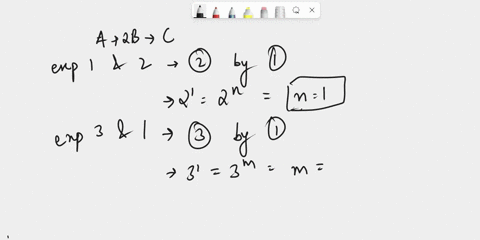 A → 2B → C
enp 1 & 2 → ② by ①
→ 2¹ = 2ⁿ = n = 1
enp 3 & 1 → ③ by ①
→ 3¹ = 3ᵐ = m =